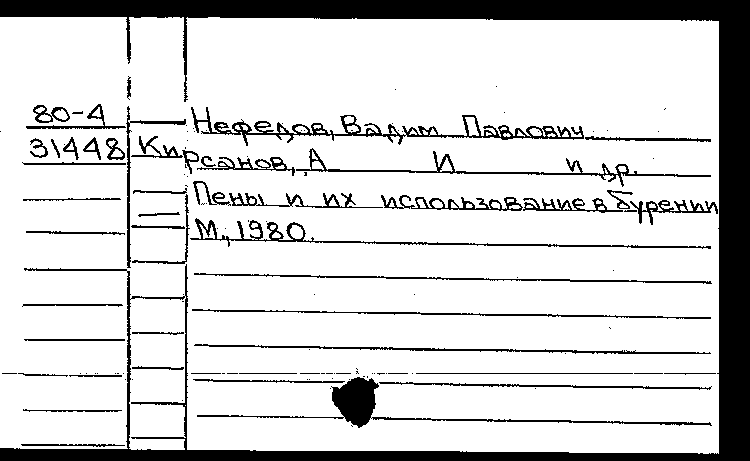 80-4 Нефедов, Вадим Павлович.
31448 Кирсанов, А И и др.
Пены и их использование в бурении
М., 1980.